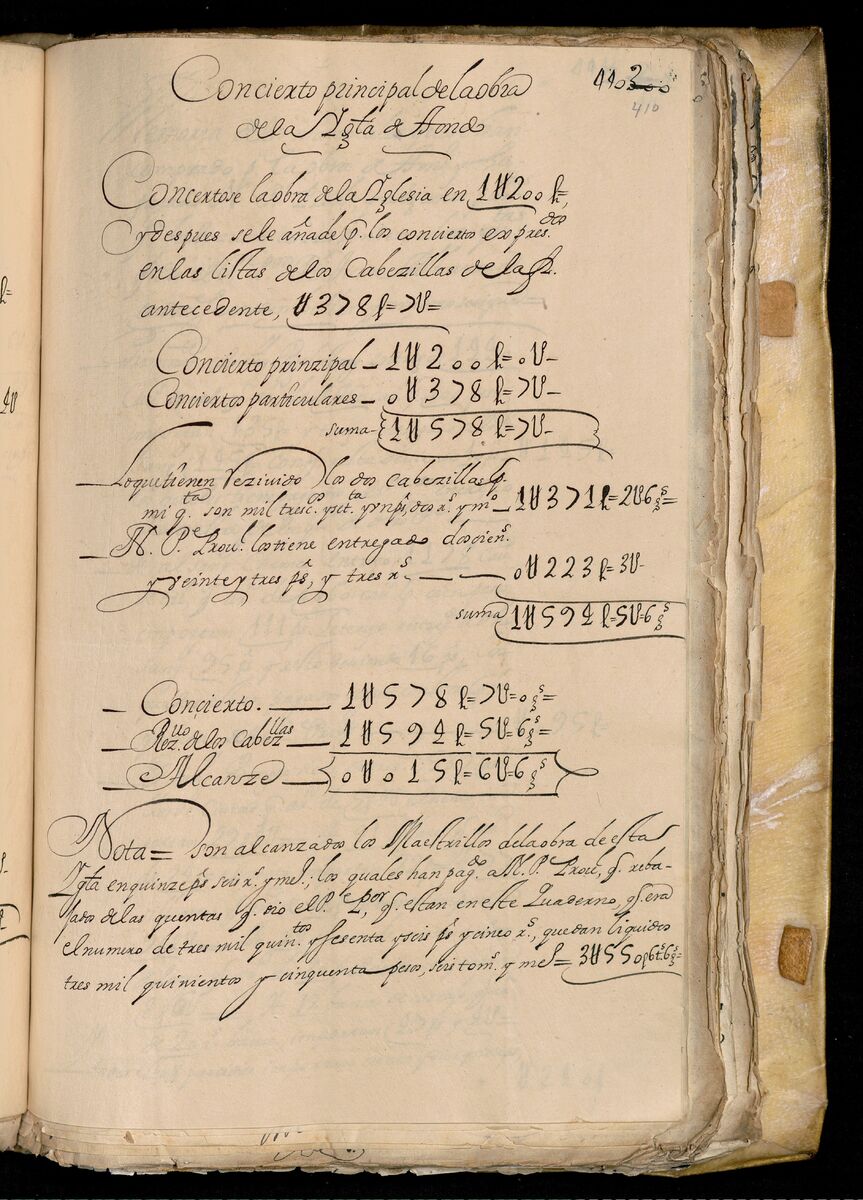 Concierto principal de la obra
de la Ygta. de Tondo
410
Concertose la obra de la Yglesia en 1U200 p.,
y despues se le añade pr. los conciertos expresdos.
en las listas de los Cabezillas de la p.
antecedente, U378 p=7U=
Concierto prinzipal - 1U200 p=0U-
Conciertos particulares - 0U378 p=7U-
suma - 1U578 p=7U-
Lo que tienen rezivido los dos Cabezillas pr.
mi qta. son mil tresctos. y setta. y vn ps., dos rs. y mo. - 1U371 p=2U6gs=
N. Pe. Proul. les tiene entregado dosçiens.
y veinte y tres ps., y tres rs. - 0U223 p=3U-
suma 1U594 p=5U=6gs
Conçierto. - 1U578 p=7U=0gs=
Rezuo. de los Cabezllas - 1U594 p=5U=6gs=
Alcanze - 0U015 p=6U=6gs
Nota = son alcanzados los Maestrillos de la obra de esta
Ygta. en quinze ps. seis rs. y mel.; los quales han pago. a N. P. Proul., q. reba-
jados de las quentas q. dio el P. Por., q. estan en este Quaderno, q. era
el numero de tres mil quintos. y sesenta y seis ps. y cinco rs., quedan liquidos
tres mil quinientos y cinquenta pesos, seis toms. y mel= 3U550p6ts6gs=